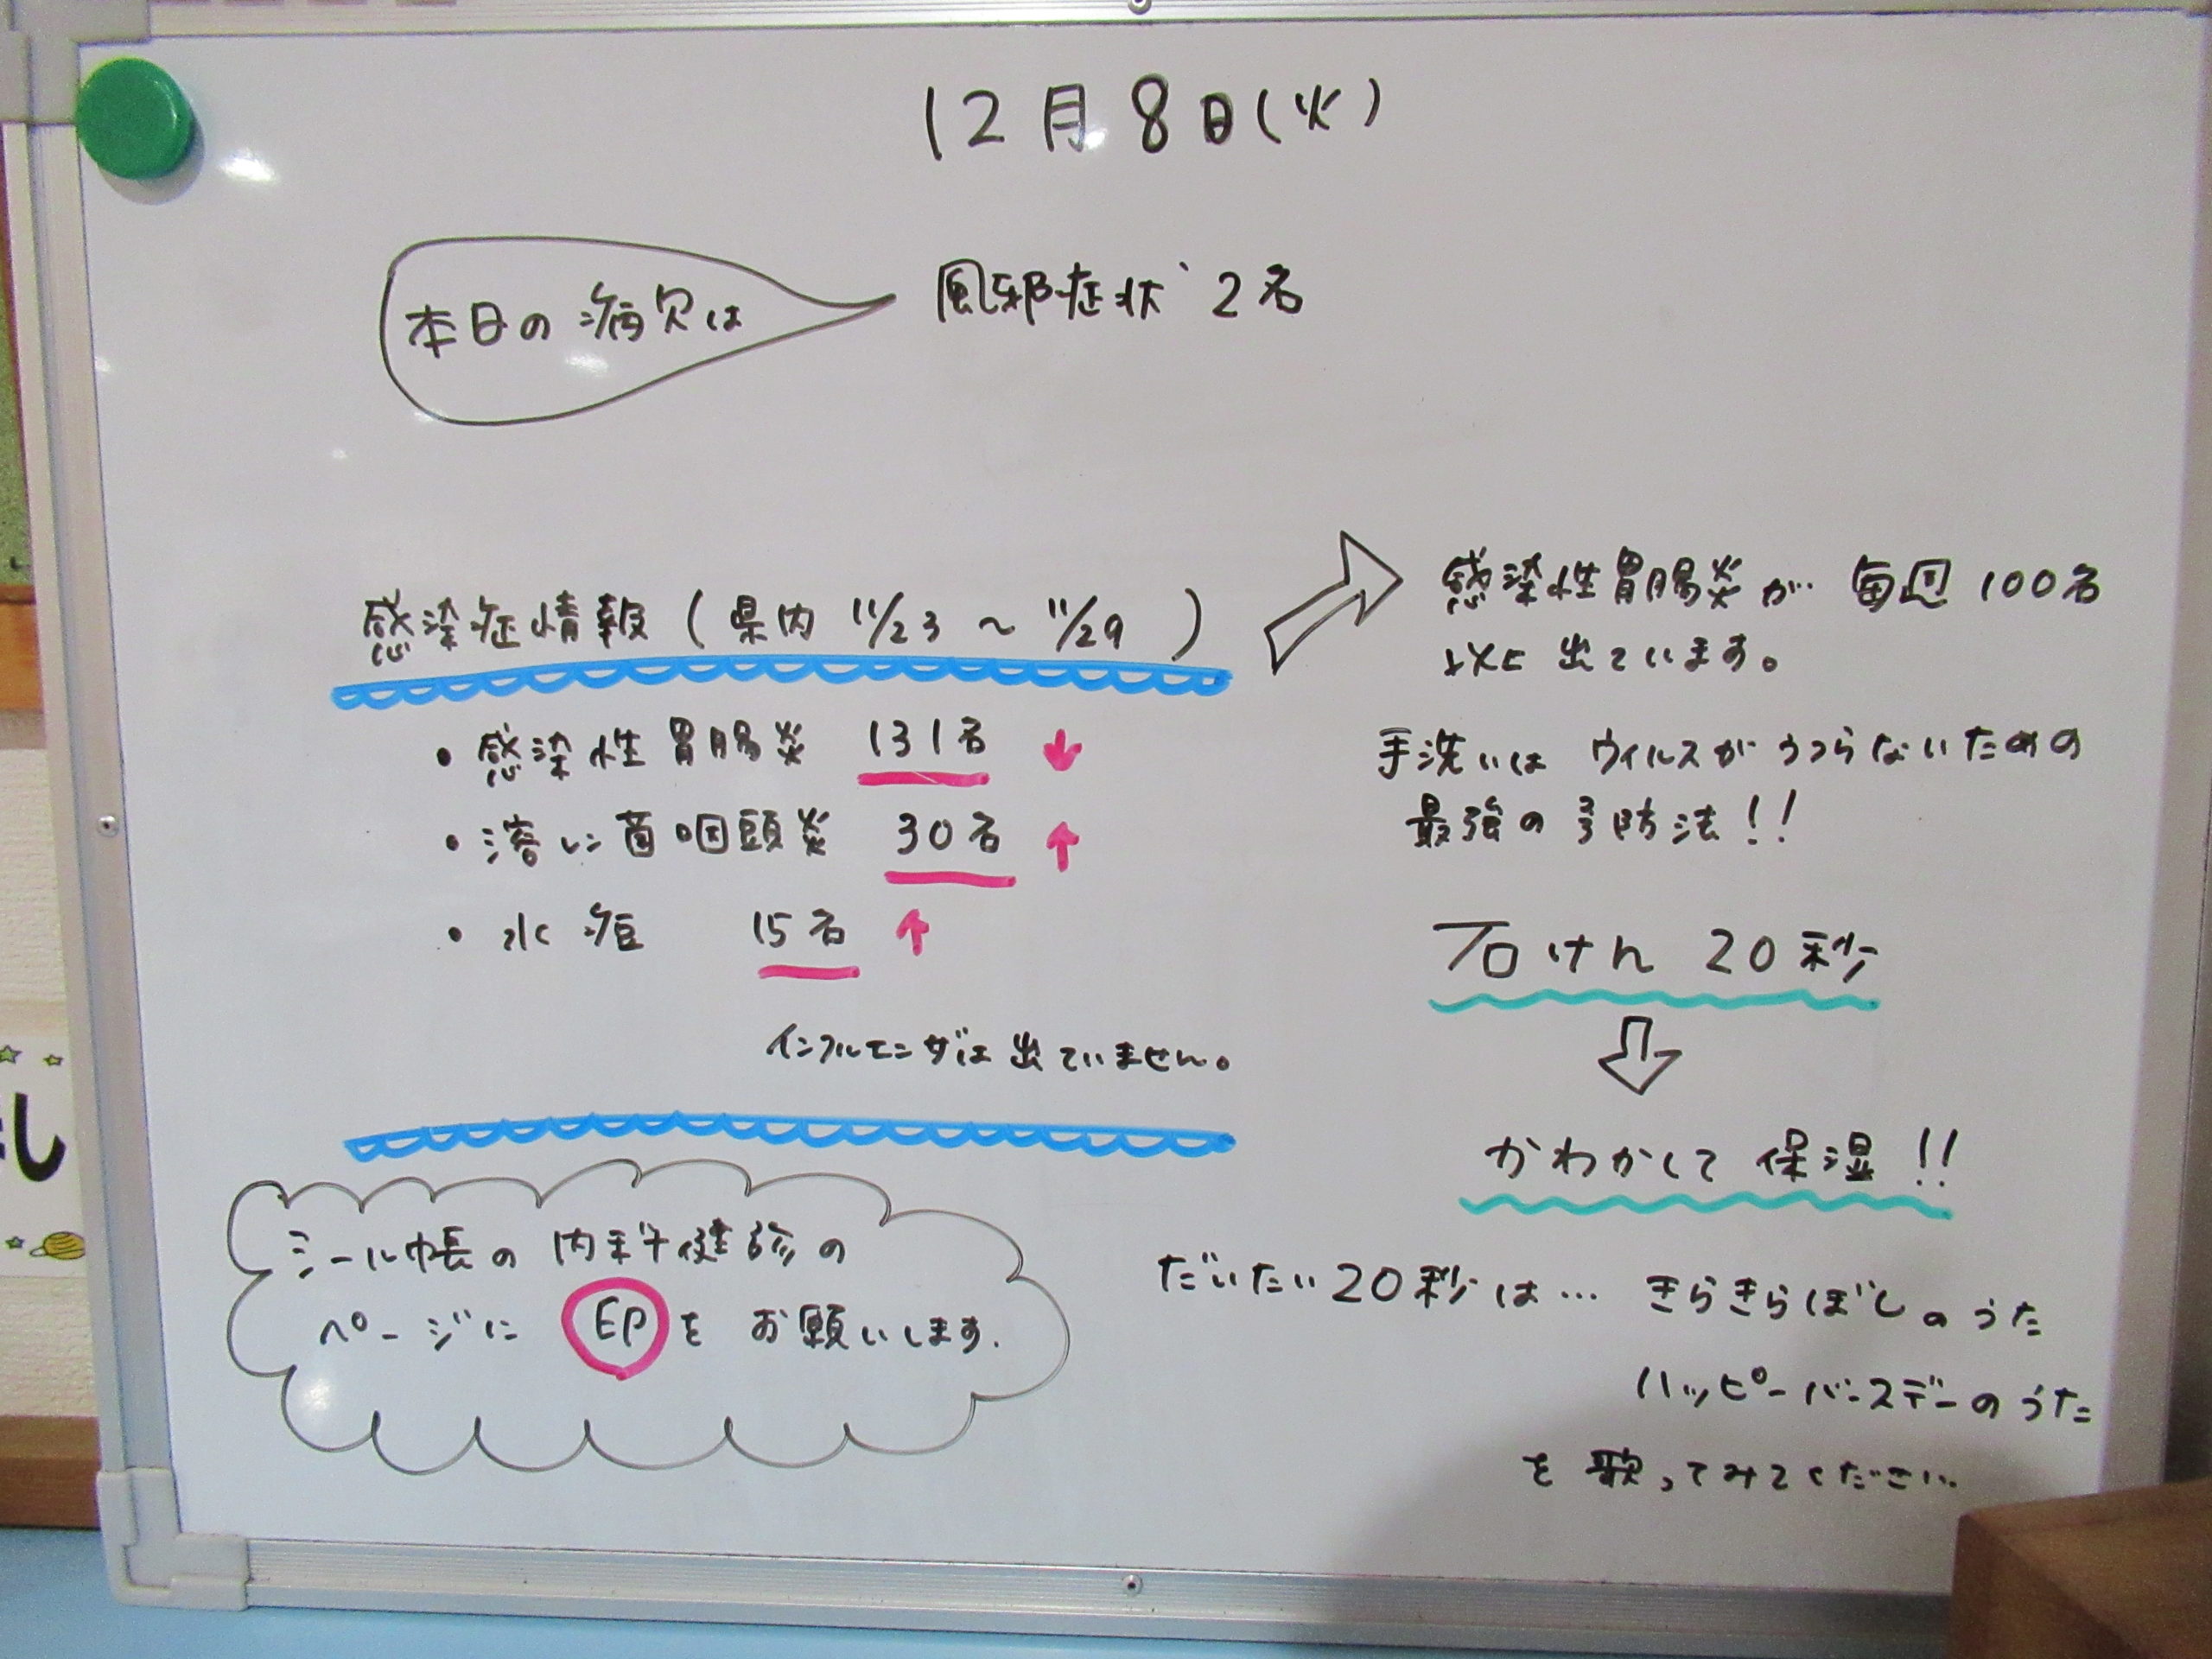 12月8日(火)
本日の病欠は
風邪症状 2名
感染症情報(県内 11/23 ~ 11/29 )
・感染性胃腸炎 131名 ↓
・溶レン菌咽頭炎 30名 ↑
・水痘 15名 ↑
インフルエンザは出ていません。
シール帳の内科健診の
ページに 印 を お願いします.
感染性胃腸炎が 毎週 100名
以上 出ています。
手洗いは ウィルスが うつらないための
最強の予防法!!
石けん 20秒
かわかして 保湿!!
だいたい20秒は… きらきらぼしのうた
ハッピーバースデーのうた
を 歌ってみてください.
し